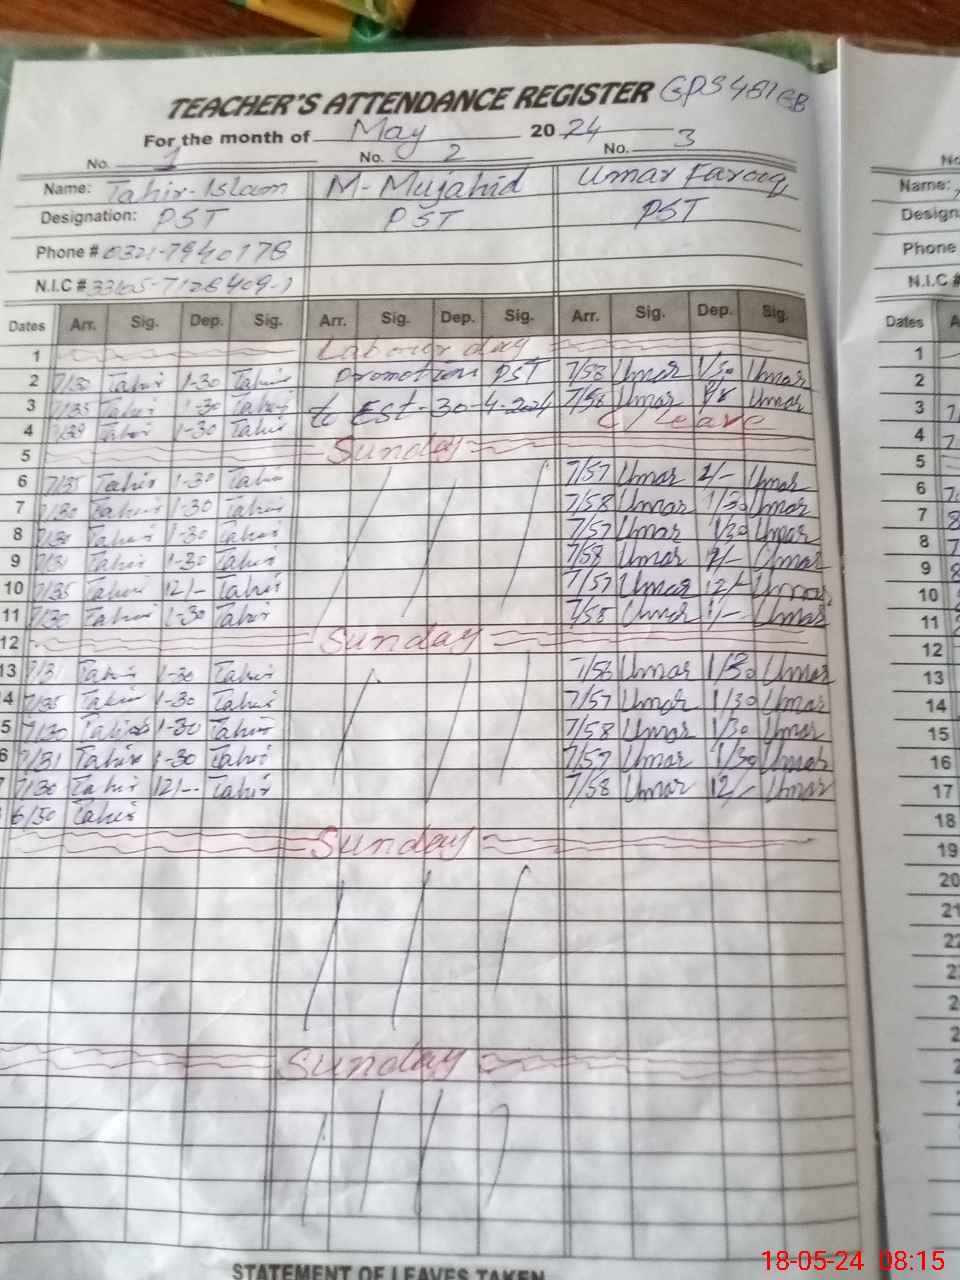 TEACHER'S ATTENDANCE REGISTER GPS 481 GB
For the month of May 2024
No. 1 No. 2 No. 3
Name: Tahir-Islam M-Mujahid Umar Farooq
Designation: PST PST PST
Phone # 0321-7940178
N.I.C #
Dates Arr. Sig. Dep. Sig. Arr. Sig. Dep. Sig. Arr. Sig. Dep. Sig.
1 Labour day
2 7/30 Tahir 1-30 Tahir Promotion PST 7/58 Umar 1/30 Umar
3 7/35 Tahir 1-30 Tahir to EST-30-4-2024 7/58 Umar Umar
4 Tahir 1-30 Tahir C/Leave
5 Sunday
6 7/35 Tahir 1-30 Tahir 7/57 Umar 1/- Umar
7 7/30 Tahir 1-30 Tahir 7/58 Umar 1/30 Umar
8 7/30 Tahir 1-30 Tahir 7/57 Umar 1/30 Umar
9 7/31 Tahir 1-30 Tahir 7/58 Umar 1/- Umar
10 7/35 Tahir 12/- Tahir 7/57 Umar 12/- Umar
11 7/30 Tahir 1-30 Tahir 7/58 Umar 1/- Umar
12 Sunday
13 7/31 Tahir 1-30 Tahir 7/58 Umar 1/30 Umar
14 7/35 Tahir 1-30 Tahir 7/57 Umar 1/30 Umar
5 7/30 Tahir 1-30 Tahir 7/58 Umar 1/30 Umar
6 7/31 Tahir 1-30 Tahir 7/57 Umar 1/30 Umar
7 7/30 Tahir 12/-- Tahir 7/58 Umar 12/- Umar
6/50 Tahir
Sunday
Sunday
STATEMENT OF LEAVES TAKEN
No
Name:
Design
Phone
N.I.C #
Dates A
1
2
3
4
5
6
7
8
9
10
11
12
13
14
15
16
17
18
19
20
21
22
18-05-24 08:15